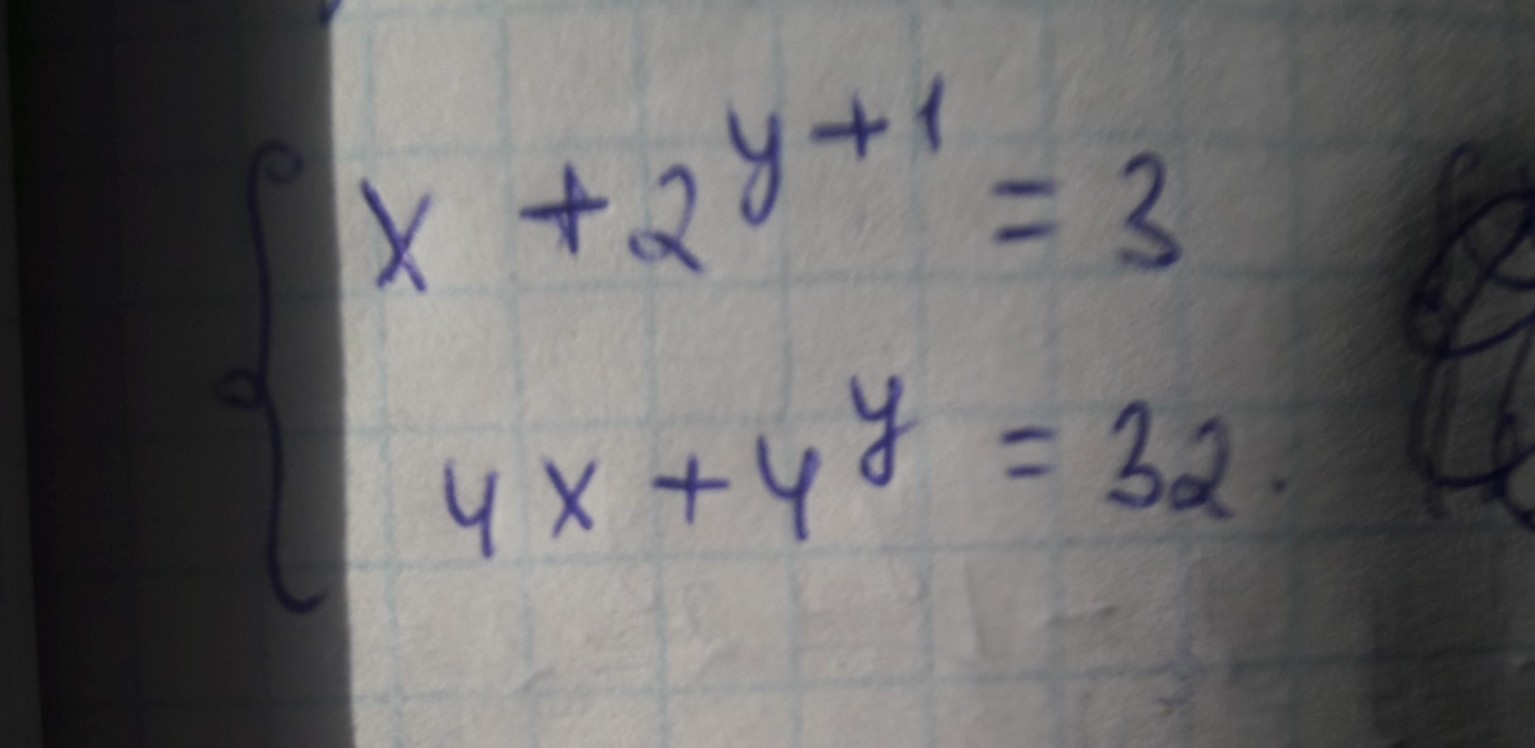 x + 2^{y+1} = 3
4x + 4^y = 32.